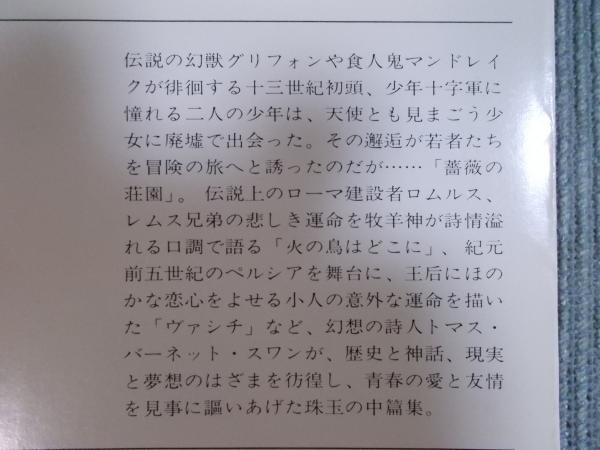 伝説の幻獣グリフォンや食人鬼マンドレイ
クが徘徊する十三世紀初頭、少年十字軍に
憧れる二人の少年は、天使とも見まごう少
女に廃墟で出会った。その邂逅が若者たち
を冒険の旅へと誘ったのだが……「薔薇の
荘園」。伝説上のローマ建設者ロムルス、
レムス兄弟の悲しき運命を牧羊神が詩情溢
れる口調で語る「火の鳥はどこに」、紀元
前五世紀のペルシアを舞台に、王后にほの
かな恋心をよせる小人の意外な運命を描い
た「ヴァシチ」など、幻想の詩人トマス・
バーネット・スワンが、歴史と神話、現実
と夢想のはざまを彷徨し、青春の愛と友情
を見事に謳いあげた珠玉の中篇集。